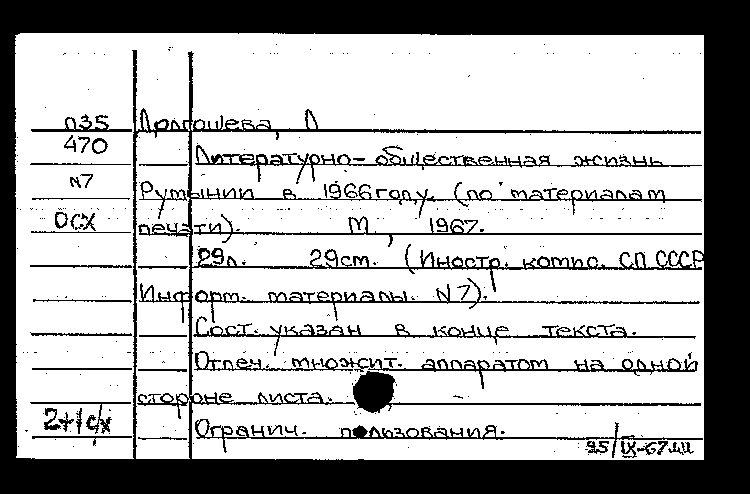 П35 Долгошева, Л
470
Литературно-общественная жизнь
N7 Румынии в 1966 году. (по материалам
ОСХ печати). М, 1967.
29л. 29см. (Иностр. комис. СП СССР
Информ. материалы. N7).
Сост. указан в конце текста.
Отпеч. множит. аппаратом на одной
стороне листа.
2+1 с/х Огранич. пользования.
25/IX-67